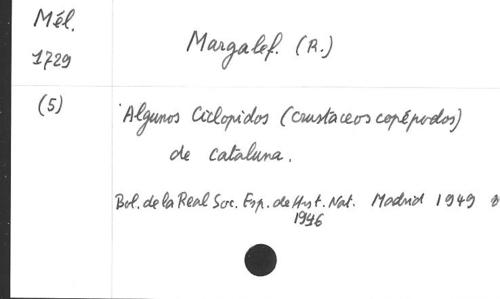 Mél.
1729
Margalef. (R.)
(5)
Algunos Ciclopidos (crustaceos copépodos)
de cataluna.
Bol. de la Real Soc. Esp. de Hist. Nat. Madrid 1949
1946